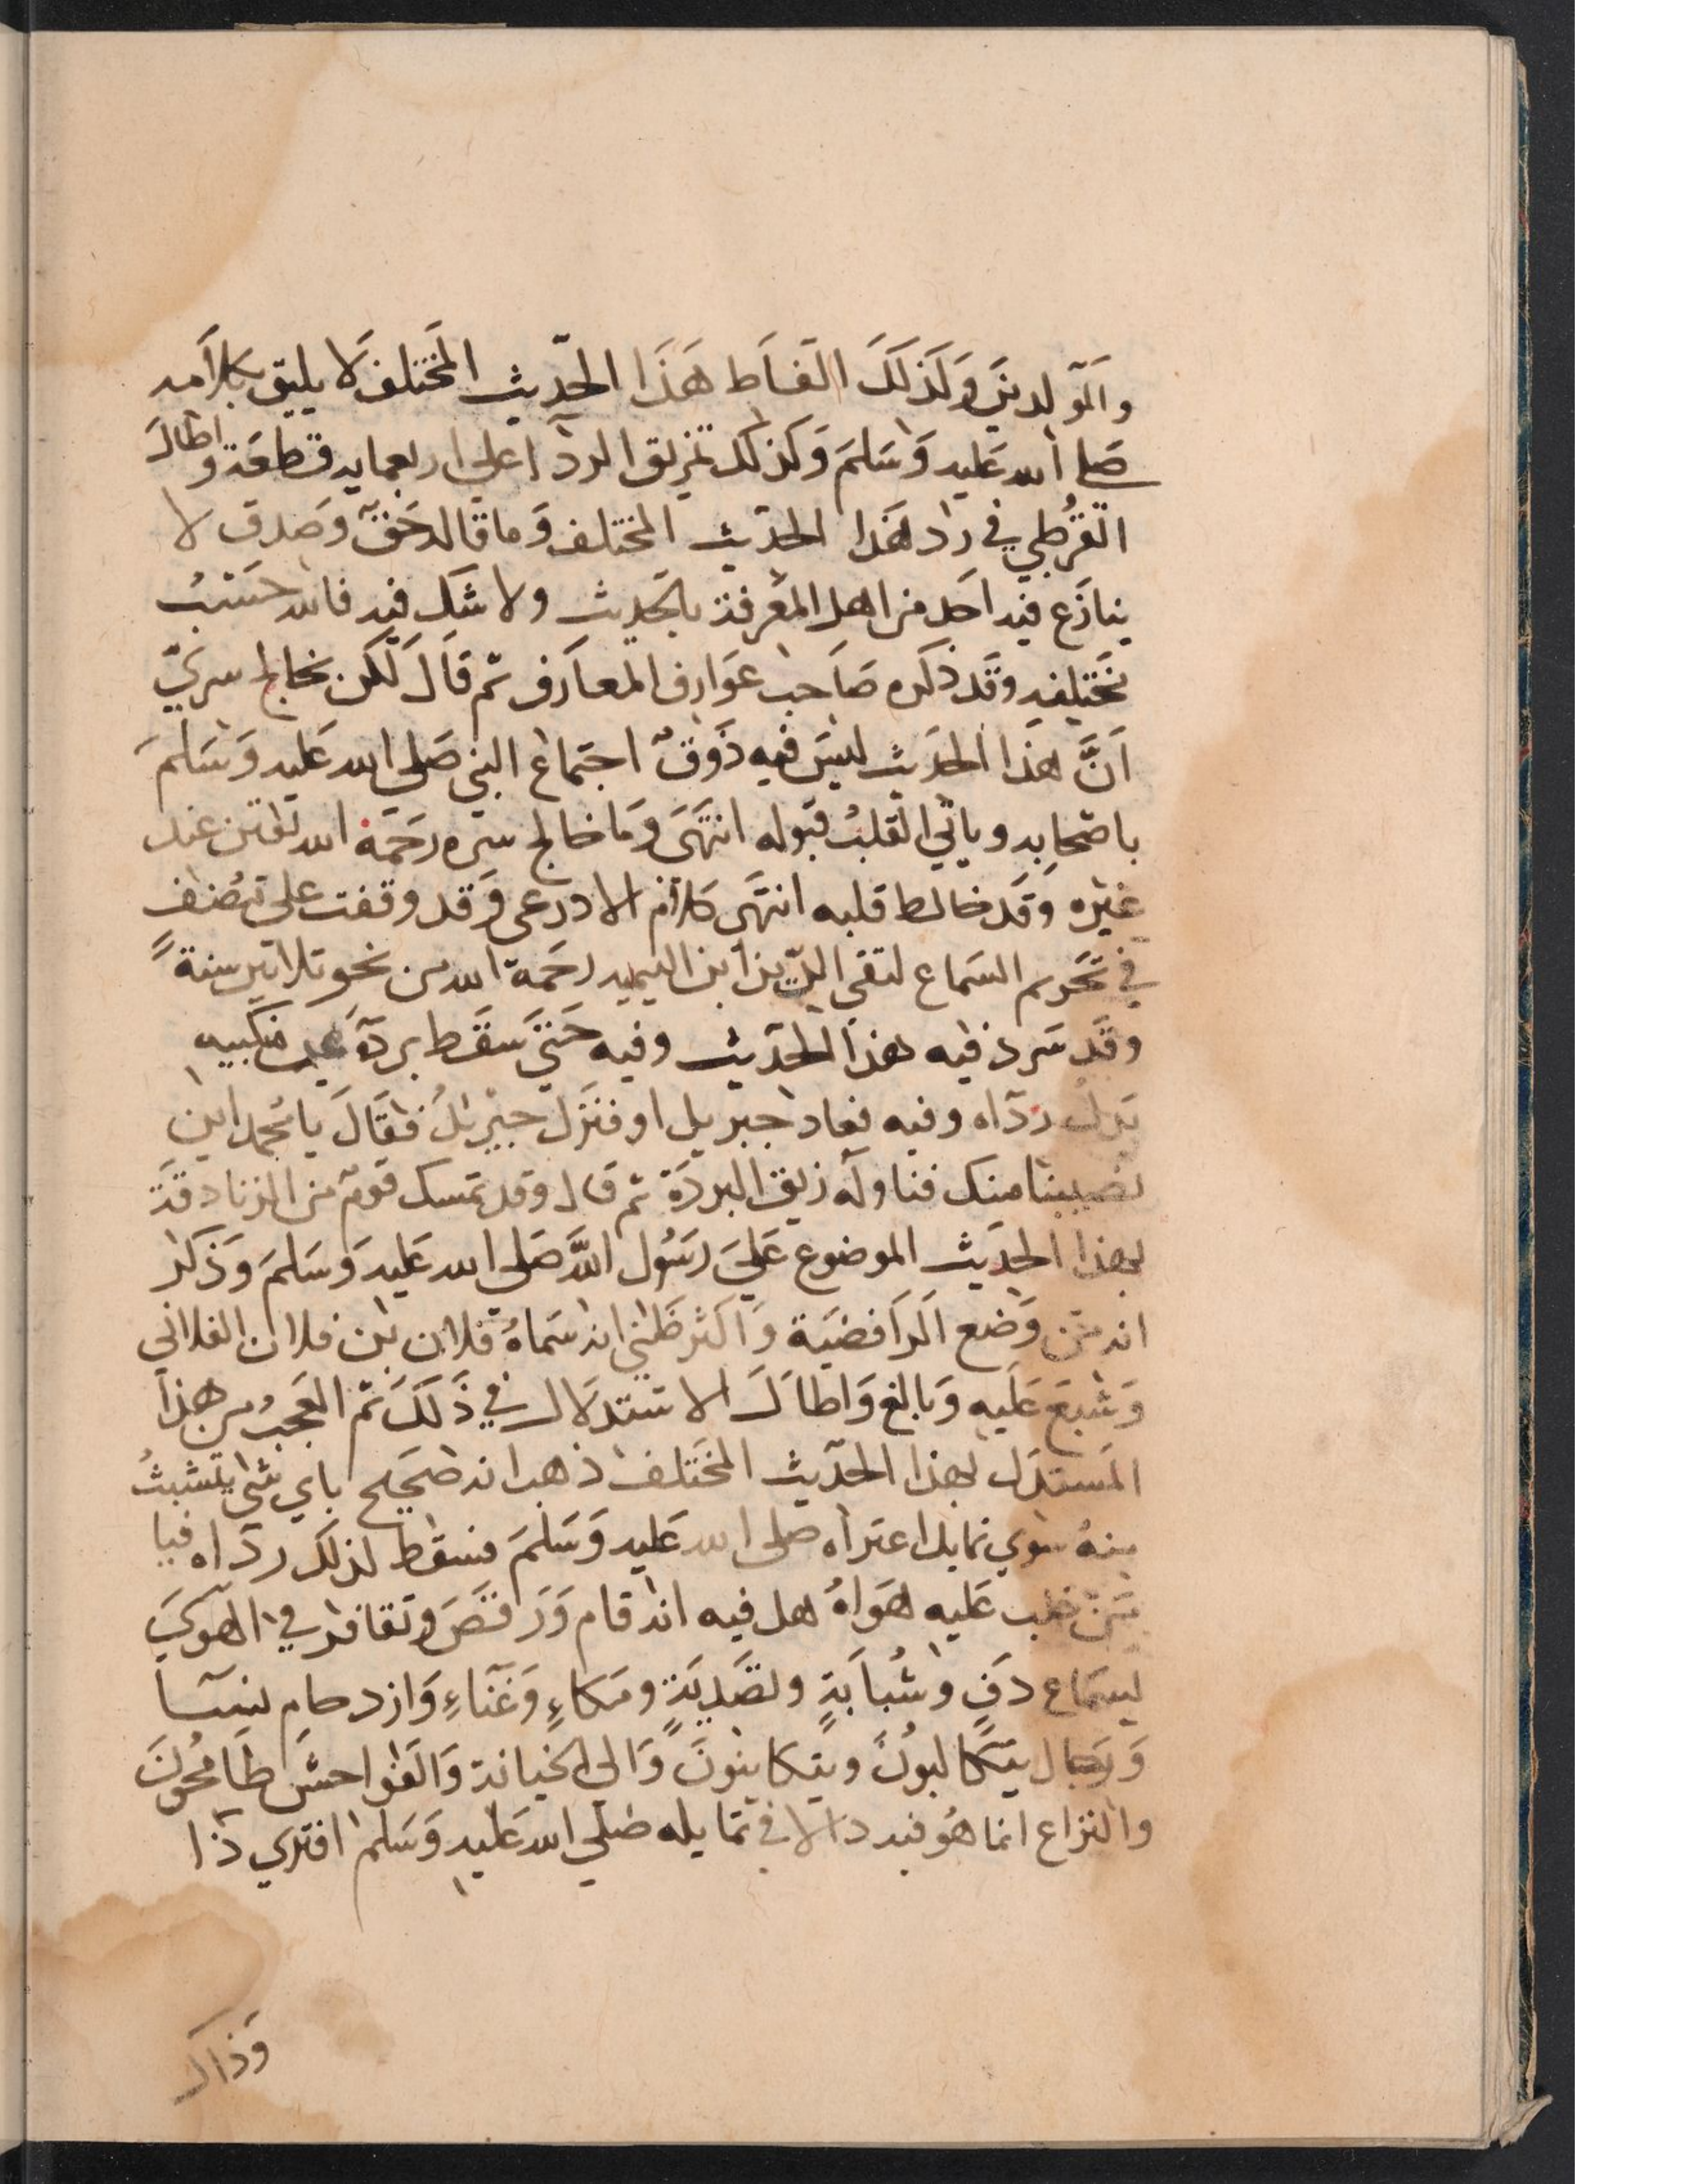 والمولدين وكذلك الفاط هذا الحديث المختلف لا يليق بكلامه
صلى الله عليه وسلم وكذلك تمزيق الردا اعلي اربعمايه قطعة واطال
القرطبي في رد هذا الحديث المختلف وما قاله حق وصدق لا
ينازع فيه احد من اهل المعرفة بالحديث ولا شك فيه فالله حسب
مختلفه وقد ذكره صاحب عوارف المعارف ثم قال لكن يخالج سري
ان هذا الحديث ليس فيه ذوق اجتماع النبي صلى الله عليه وسلم
باصحابه وياتي القلب قبوله انتهى وما خالج سره رحمة الله تيقن عند
غيره وقد خالط قلبه انتهى كلام الادرعي وقد وقفت على تصنف
في تحريم السماع لتقي الدين ابن التيميه رحمة الله من نحو ثلاثين سنة
وقد سرد فيه هذا الحديث وفيه حتي سقط بردة عن منكبيه
بدل رداه وفيه فعاد جبريل او فنزل جبريل فقال يا محمد اين
نصيبنا منك فناوله زيق البردة ثم قال وقد تمسك قوم من الزنادقة
بهذا الحديث الموضوع علي رسول الله صلى الله عليه وسلم وذكر
انه من وضع الرافضية واكثر ظني انه سماه فلان بن فلان الفلاني
وشبع عليه وبالغ واطال الاستدلال في ذلك ثم العجب من هذا
المستدل بهذا الحديث المختلف ذهب انه صحيح باي شي يتشبث
منه سوي تمايل اعتراه صلى الله عليه وسلم فسقط لذلك رداه فيا
من غلب عليه هواه هل فيه انه قام ورقص وتقافز في الهوي
لسماع دف وشبابة وتصدية ومكاء وغناء وازدحام نسا
ورجال يتكالبون ويتكاينون والي الخيانة والفواحش طامحون
والنزاع انما هو فيه لا في تمايله صلى الله عليه وسلم افتري ذا
وذاك